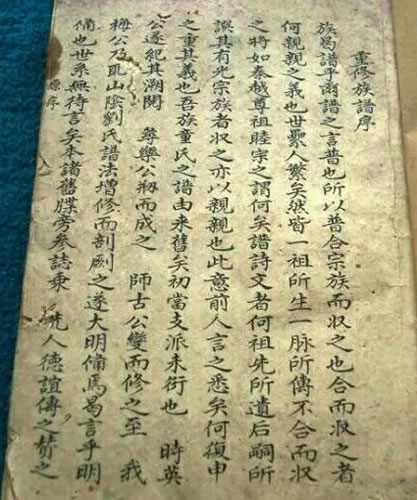 重修族譜序
族曷譜乎爾譜之言普也所以普合宗族而収之也合而収之者
何親親之義也世聚人繁矣然皆一祖所生一脉所傳不合而収
之將如秦越尊祖睦宗之謂何矣譜詩文者何祖先所遺后嗣所
誤其有光宗族者収之亦以親親也此意前人言之悉矣何復申
之重其義也吾族童氏之譜由来舊矣初當支派未衍也 時英
公遂紀其淵関 彝樂公剏而成之 師古公變而修之至 我
梅公乃㐲山陰劉氏譜法增修而剖劂之遂大明備焉曷言乎明
備也世系無待言矣本諸舊牒旁参誌乘 人德誼傳之贊之
原序